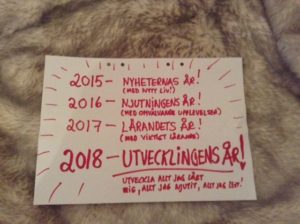 2015 - NYHETERNAS ÅR!
(MED NYTT LIV!)
2016 - NJUTNINGENS ÅR!
(MED OMVÄLVANDE UPPLEVELSER)
2017 - LÄRANDETS ÅR!
(MED VIKTIGT LÄRANDE)
2018 - UTVECKLINGENS ÅR!
UTVECKLA ALLT JAG LÄRT
MIG, ALLT JAG NJUTIT, ALLT JAG